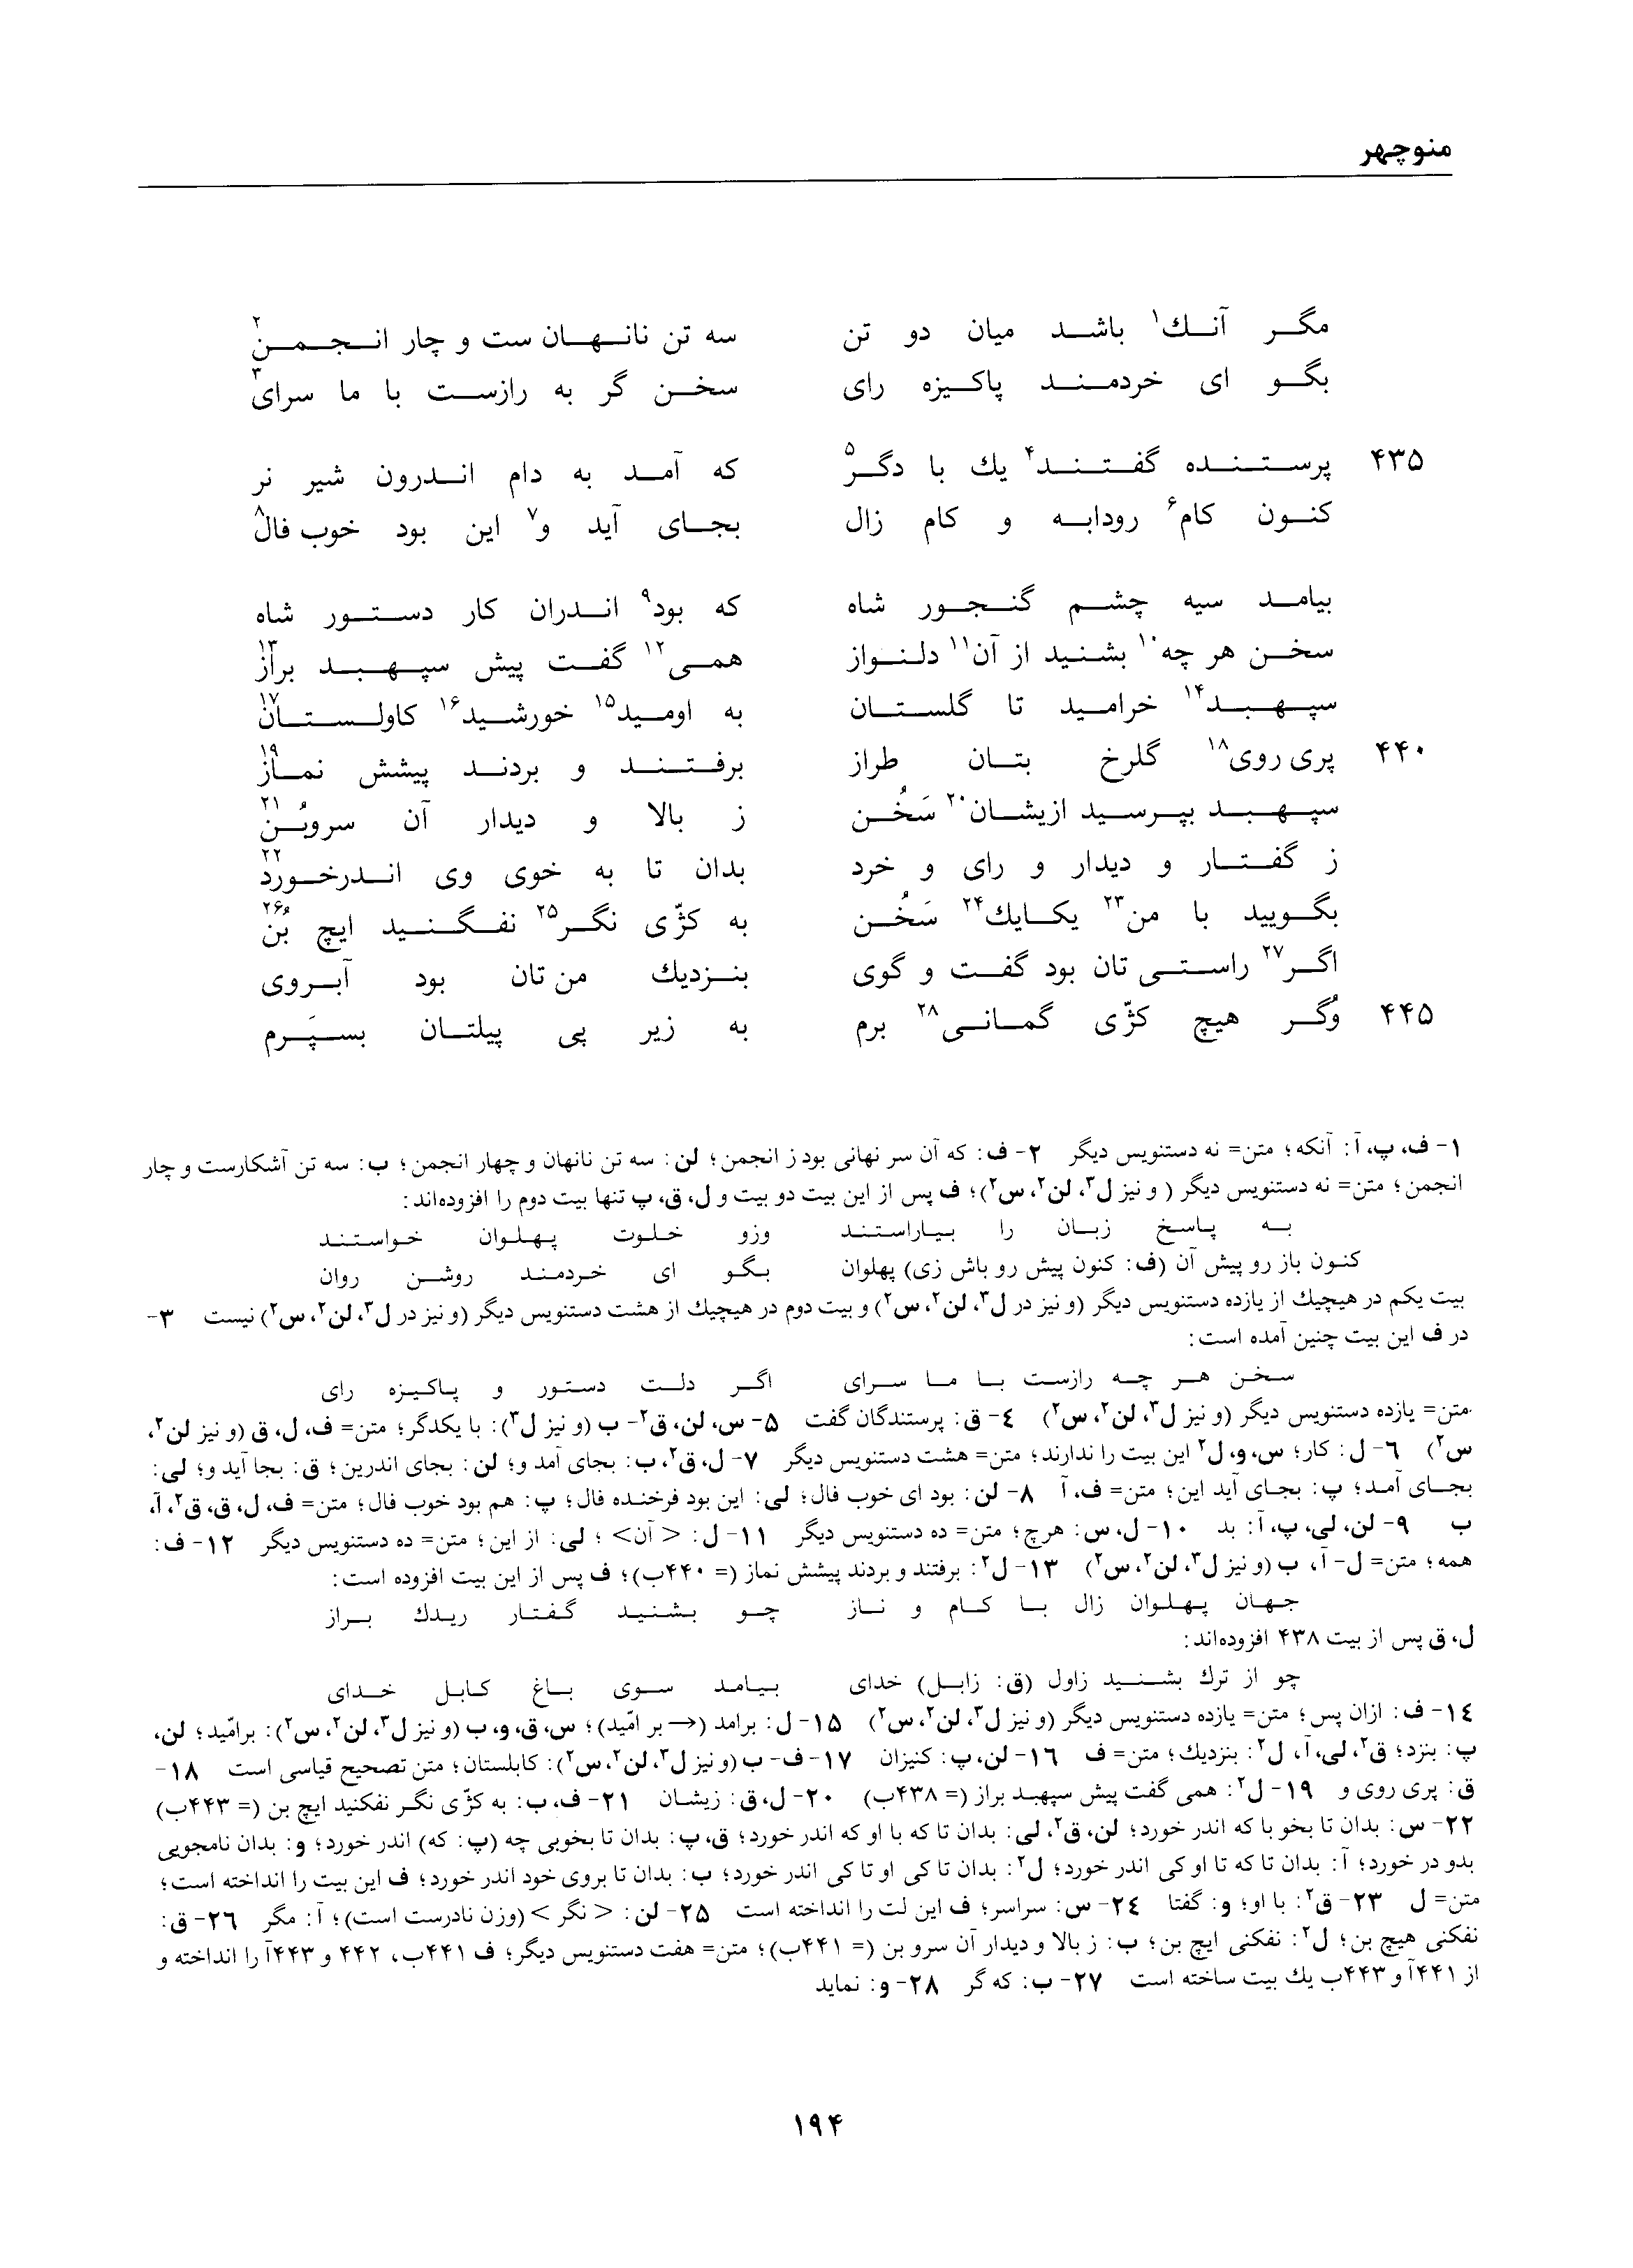 منوچهر
مگر آنك۱ باشد میان دو تن سه تن نانهان ست و چار انجمن۲
بگو ای خردمند پاکیزه رای سخن گر به رازست با ما سرای۳
۴۳۵ پرستنده گفتند۴ یك با دگر۵ که آمد به دام اندرون شیر نر
کنون کام۶ رودابه و کام زال بجای آید و۷ این بود خوب فال۸
بیامد سیه چشم گنجور شاه که بود۹ اندران کار دستور شاه
سخن هر چه۱۰ بشنید از آن۱۱ دلنواز همی۱۲ گفت پیش سپهبد براز۱۳
سپهبد۱۴ خرامید تا گلستان به اومید۱۵ خورشید۱۶ کاولستان۱۷
۴۴۰ پری روی۱۸ گلرخ بتان طراز برفتند و بردند پیشش نماز۱۹
سپهبد بپرسید ازیشان۲۰ سَخُن ز بالا و دیدار آن سروبُن۲۱
ز گفتار و دیدار و رای و خرد بدان تا به خوی وی اندرخورد۲۲
بگویید با من۲۳ یکایك۲۴ سَخُن به کژّی نگر۲۵ نفگنید ایچ بُن۲۶
اگر۲۷ راستی تان بود گفت و گوی بنزدیك من تان بود آبروی
۴۴۵ وُگر هیچ کژّی گمانی۲۸ برم به زیر پی پیلتان بسپَرم
۱- ف، پ، آ: آنکه؛ متن= نه دستنویس دیگر ۲- ف: که آن سر نهانی بود ز انجمن؛ لن: سه تن نانهان و چهار انجمن؛ ب: سه تن آشکارست و چار
انجمن؛ متن= نه دستنویس دیگر ( و نیز ل۳، لن۲، س۲)؛ ف پس از این بیت دو بیت و ل، ق، پ تنها بیت دوم را افزوده‌اند:
به پاسخ زبان را بیاراستند وزو خلوت پهلوان خواستند
کنون باز رو پیش آن (ف: کنون پیش رو باش زی) پهلوان بگو ای خردمند روشن روان
بیت یکم در هیچیك از یازده دستنویس دیگر (و نیز در ل۳، لن۲، س۲) و بیت دوم در هیچیك از هشت دستنویس دیگر (و نیز در ل۳، لن۲، س۲) نیست ۳-
در ف این بیت چنین آمده است:
سخن هر چه رازست با ما سرای اگر دلت دستور و پاکیزه رای
متن= یازده دستنویس دیگر (و نیز ل۳، لن۲، س۲) ۴- ق: پرستندگان گفت ۵- س، لن، ق۲- ب (و نیز ل۳): با یکدگر؛ متن= ف، ل، ق (و نیز لن۲،
س۲) ۶- ل: کار؛ س، و، ل۲ این بیت را ندارند؛ متن= هشت دستنویس دیگر ۷- ل، ق۲، ب: بجای آمد و؛ لن: بجای اندرین؛ ق: بجا آید و؛ لی:
بجای آمد؛ پ: بجای آید این؛ متن= ف، آ ۸- لن: بود ای خوب فال؛ لی: این بود فرخنده فال؛ پ: هم بود خوب فال؛ متن= ف، ل، ق، ق۲، آ،
ب ۹- لن، لی، پ، آ: بد ۱۰- ل، س: هرچ؛ متن= ده دستنویس دیگر ۱۱- ل: < آن> ؛ لی: از این؛ متن= ده دستنویس دیگر ۱۲- ف:
همه؛ متن= ل- آ، ب (و نیز ل۳، لن۲، س۲) ۱۳- ل۲: برفتند و بردند پیشش نماز (= ۴۴۰ب)؛ ف پس از این بیت افزوده است:
جهان پهلوان زال با کام و ناز چو بشنید گفتار ریدك براز
ل، ق پس از بیت ۴۳۸ افزوده‌اند:
چو از ترك بشنید زاول (ق: زابل) خدای بیامد سوی باغ کابل خدای
۱۴- ف: ازان پس؛ متن= یازده دستنویس دیگر (و نیز ل۳، لن۲، س۲) ۱۵- ل: برامد (→ بر امّید)؛ س، ق، و، ب (و نیز ل۳، لن۲، س۲): برامّید؛ لن،
پ: بنزد؛ ق۲، لی، آ، ل۲: بنزدیك؛ متن= ف ۱۶- لن، پ: کنیزان ۱۷- ف- ب (و نیز ل۳، لن۲، س۲): کابلستان؛ متن تصحیح قیاسی است ۱۸-
ق: پری روی و ۱۹- ل۲: همی گفت پیش سپهبد براز (= ۴۳۸ب) ۲۰- ل، ق: زیشان ۲۱- ف، ب: به کژّی نگر نفکنید ایچ بن (= ۴۴۳ب)
۲۲- س: بدان تا بخو با که اندر خورد؛ لن، ق۲، لی: بدان تا که با او که اندر خورد؛ ق، پ: بدان تا بخوبی چه (پ: که) اندر خورد؛ و: بدان نامجویی
بدو در خورد؛ آ: بدان تا که تا او کی اندر خورد؛ ل۲: بدان تا کی او تا کی اندر خورد؛ ب: بدان تا بروی خود اندر خورد؛ ف این بیت را انداخته است؛
متن= ل ۲۳- ق۲: با او؛ و: گفتا ۲۴- س: سراسر؛ ف این لت را انداخته است ۲۵- لن: < نگر > (وزن نادرست است)؛ آ: مگر ۲۶- ق:
نفکنی هیچ بن؛ ل۲: نفکنی ایچ بن؛ ب: ز بالا و دیدار آن سرو بن (= ۴۴۱ب)؛ متن= هفت دستنویس دیگر؛ ف ۴۴۱ب، ۴۴۲ و ۴۴۳آ را انداخته و
از ۴۴۱آ و ۴۴۳ب یك بیت ساخته است ۲۷- ب: که گر ۲۸- و: نماید
۱۹۴